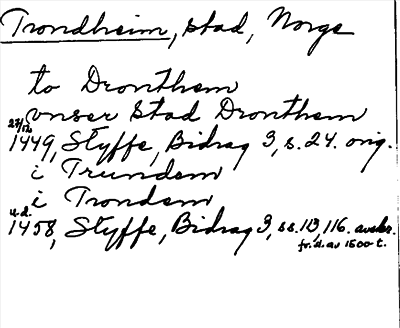 Trondheim, stad, Norge
to Dronthem
vnser Stad Dronthem
27/12 1449, Styffe, Bidrag 3, s. 24. orig.
i Trundem
i Trondem
u.d. 1458, Styffe, Bidrag 3, ss. 113, 116. avskr. fr. sl. av 1500-t.